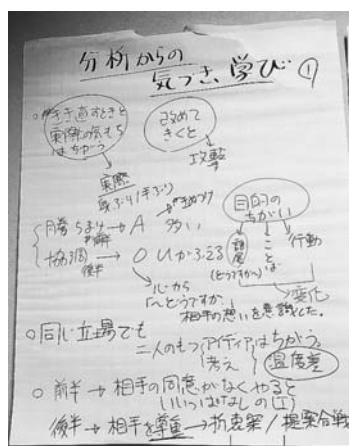 分析からの
気づき、学び ①
書き直すときと
実際の気もち
はちがう
改めて
きくと
攻撃
実際
身ぶり/手ぶり
A 多い
協調 → O
後半
目的の
ちがい
語尾
ことば
行動
(どうですか)
心から
「〜どうですか」
変化
相手の想いを意識した。
○同じ立場でも
二人のもつアイディアはちがう。
考え
温度差
○前半→相手の同意がなくやると
いいっぱなしの
後半→相手を尊重→折衷案/提案合戦